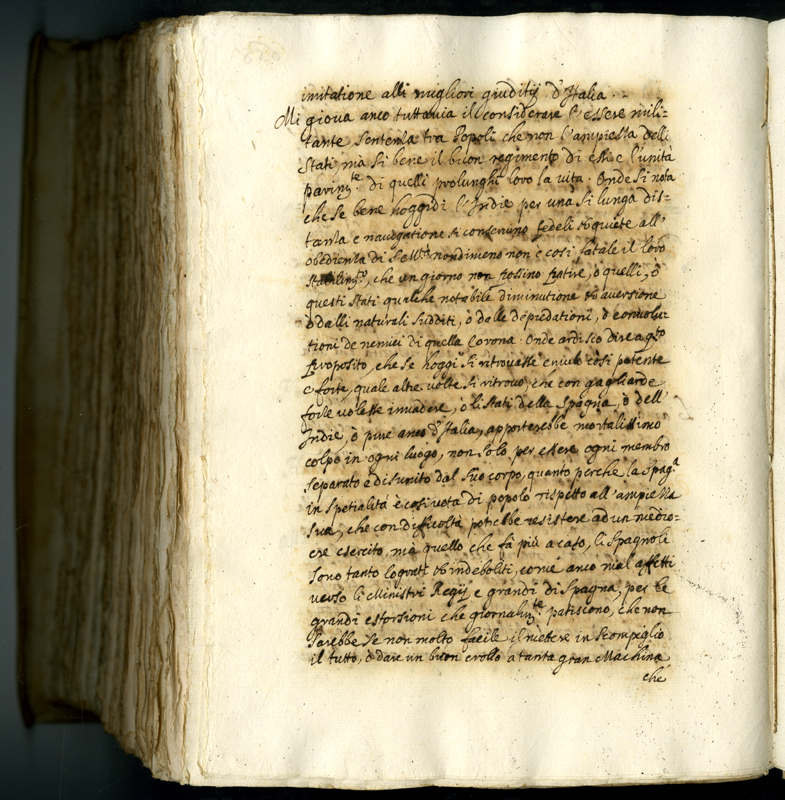 imitatione alli migliori giuditij d'Italia.
Mi gioua anco tuttauia il considerare l'essere mili-
tante sentenza tra Popoli che non l'ampiezza delli
Stati, mà si bene il buon regimento di essi e l'unità
parimte. di quelli prolunghi loro la uita. Onde si nota
che se bene hoggidi l'Indie per una si lunga dis-
tanza e nauigatione si conseruino fedeli et quiete all'
obedienza di S. Mtà nondimeno non è cosi fatale il loro
stabilimto, che un giorno non possino patire, ò quelli, ò
questi Stati qualche notabile diminutione et auersione
ò dalli naturali sudditi, ò dalle depredationi, ò conuolu-
tioni de nemici di quella Corona. Onde ardisco dire a qto
proposito, che se hoggi si ritrouasse cosi potente
e forte, quale altre uolte si ritrouò, che con gagliarde
forze uolesse inuadere, ò li Stati della Spagna, ò dell'
Indie, ò pure anco d'Italia, apporterebbe mortalissimo
colpo in ogni luogo, non solo per essere ogni membro
separato e disunito dal suo corpo, quanto perche la Spaga
in spetialità è cosi uota di popolo rispetto all'ampiezza
sua, che con difficoltà potrebbe resistere ad un medio-
cre esercito, mà quello che fà più a caso, li Spagnoli
sono tanto logorati et indeboliti, come anco mal affetti
uerso li Ministri Regij e grandi di Spagna, per le
grandi estorsioni che giornalmte. patiscono, che non
sarebbe se non molto facile il mettere in scompiglio
il tutto, ò dare un buon crollo a tanta gran Machina
che